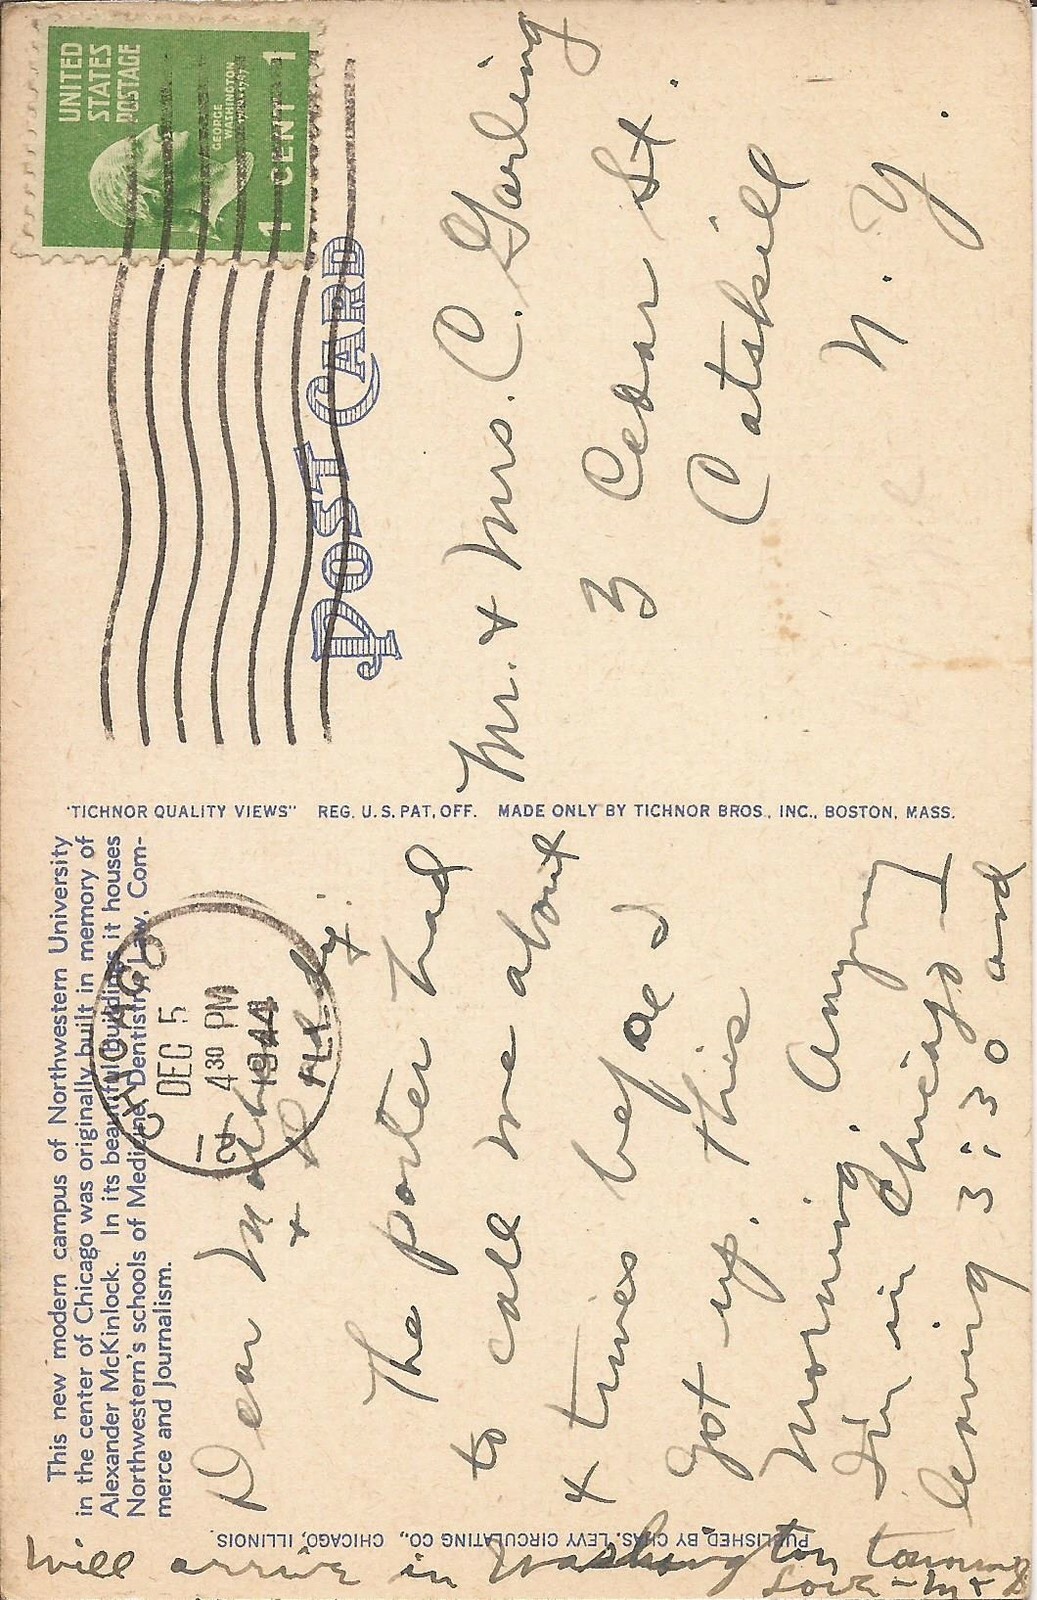 This new modern campus of Northwestern University
in the center of Chicago was originally built in memory of
Alexander McKinlock. In its beautiful buildings it houses
Northwestern's schools of Medicine, Dentistry, Law, Com-
merce and Journalism.
CHICAGO
DEC 5
4 30 PM
1944
ILL.
Dear Mother
+ Daddy:
The porter had
to call me about
4 times before I
got up this
morning. Anyway
I'm in Chicago —
leaving 3:30 and
will arrive in Washington tomor
Love — M + D
PUBLISHED BY CHAS. LEVY CIRCULATING CO., CHICAGO, ILLINOIS
"TICHNOR QUALITY VIEWS" REG. U.S. PAT. OFF. MADE ONLY BY TICHNOR BROS., INC., BOSTON, MASS.
POST CARD
UNITED
STATES
POSTAGE
GEORGE
WASHINGTON
1789-1797
1 CENT 1
Mr. + Mrs. C. Garling
3 Cedar St.
Catskill
N. Y.